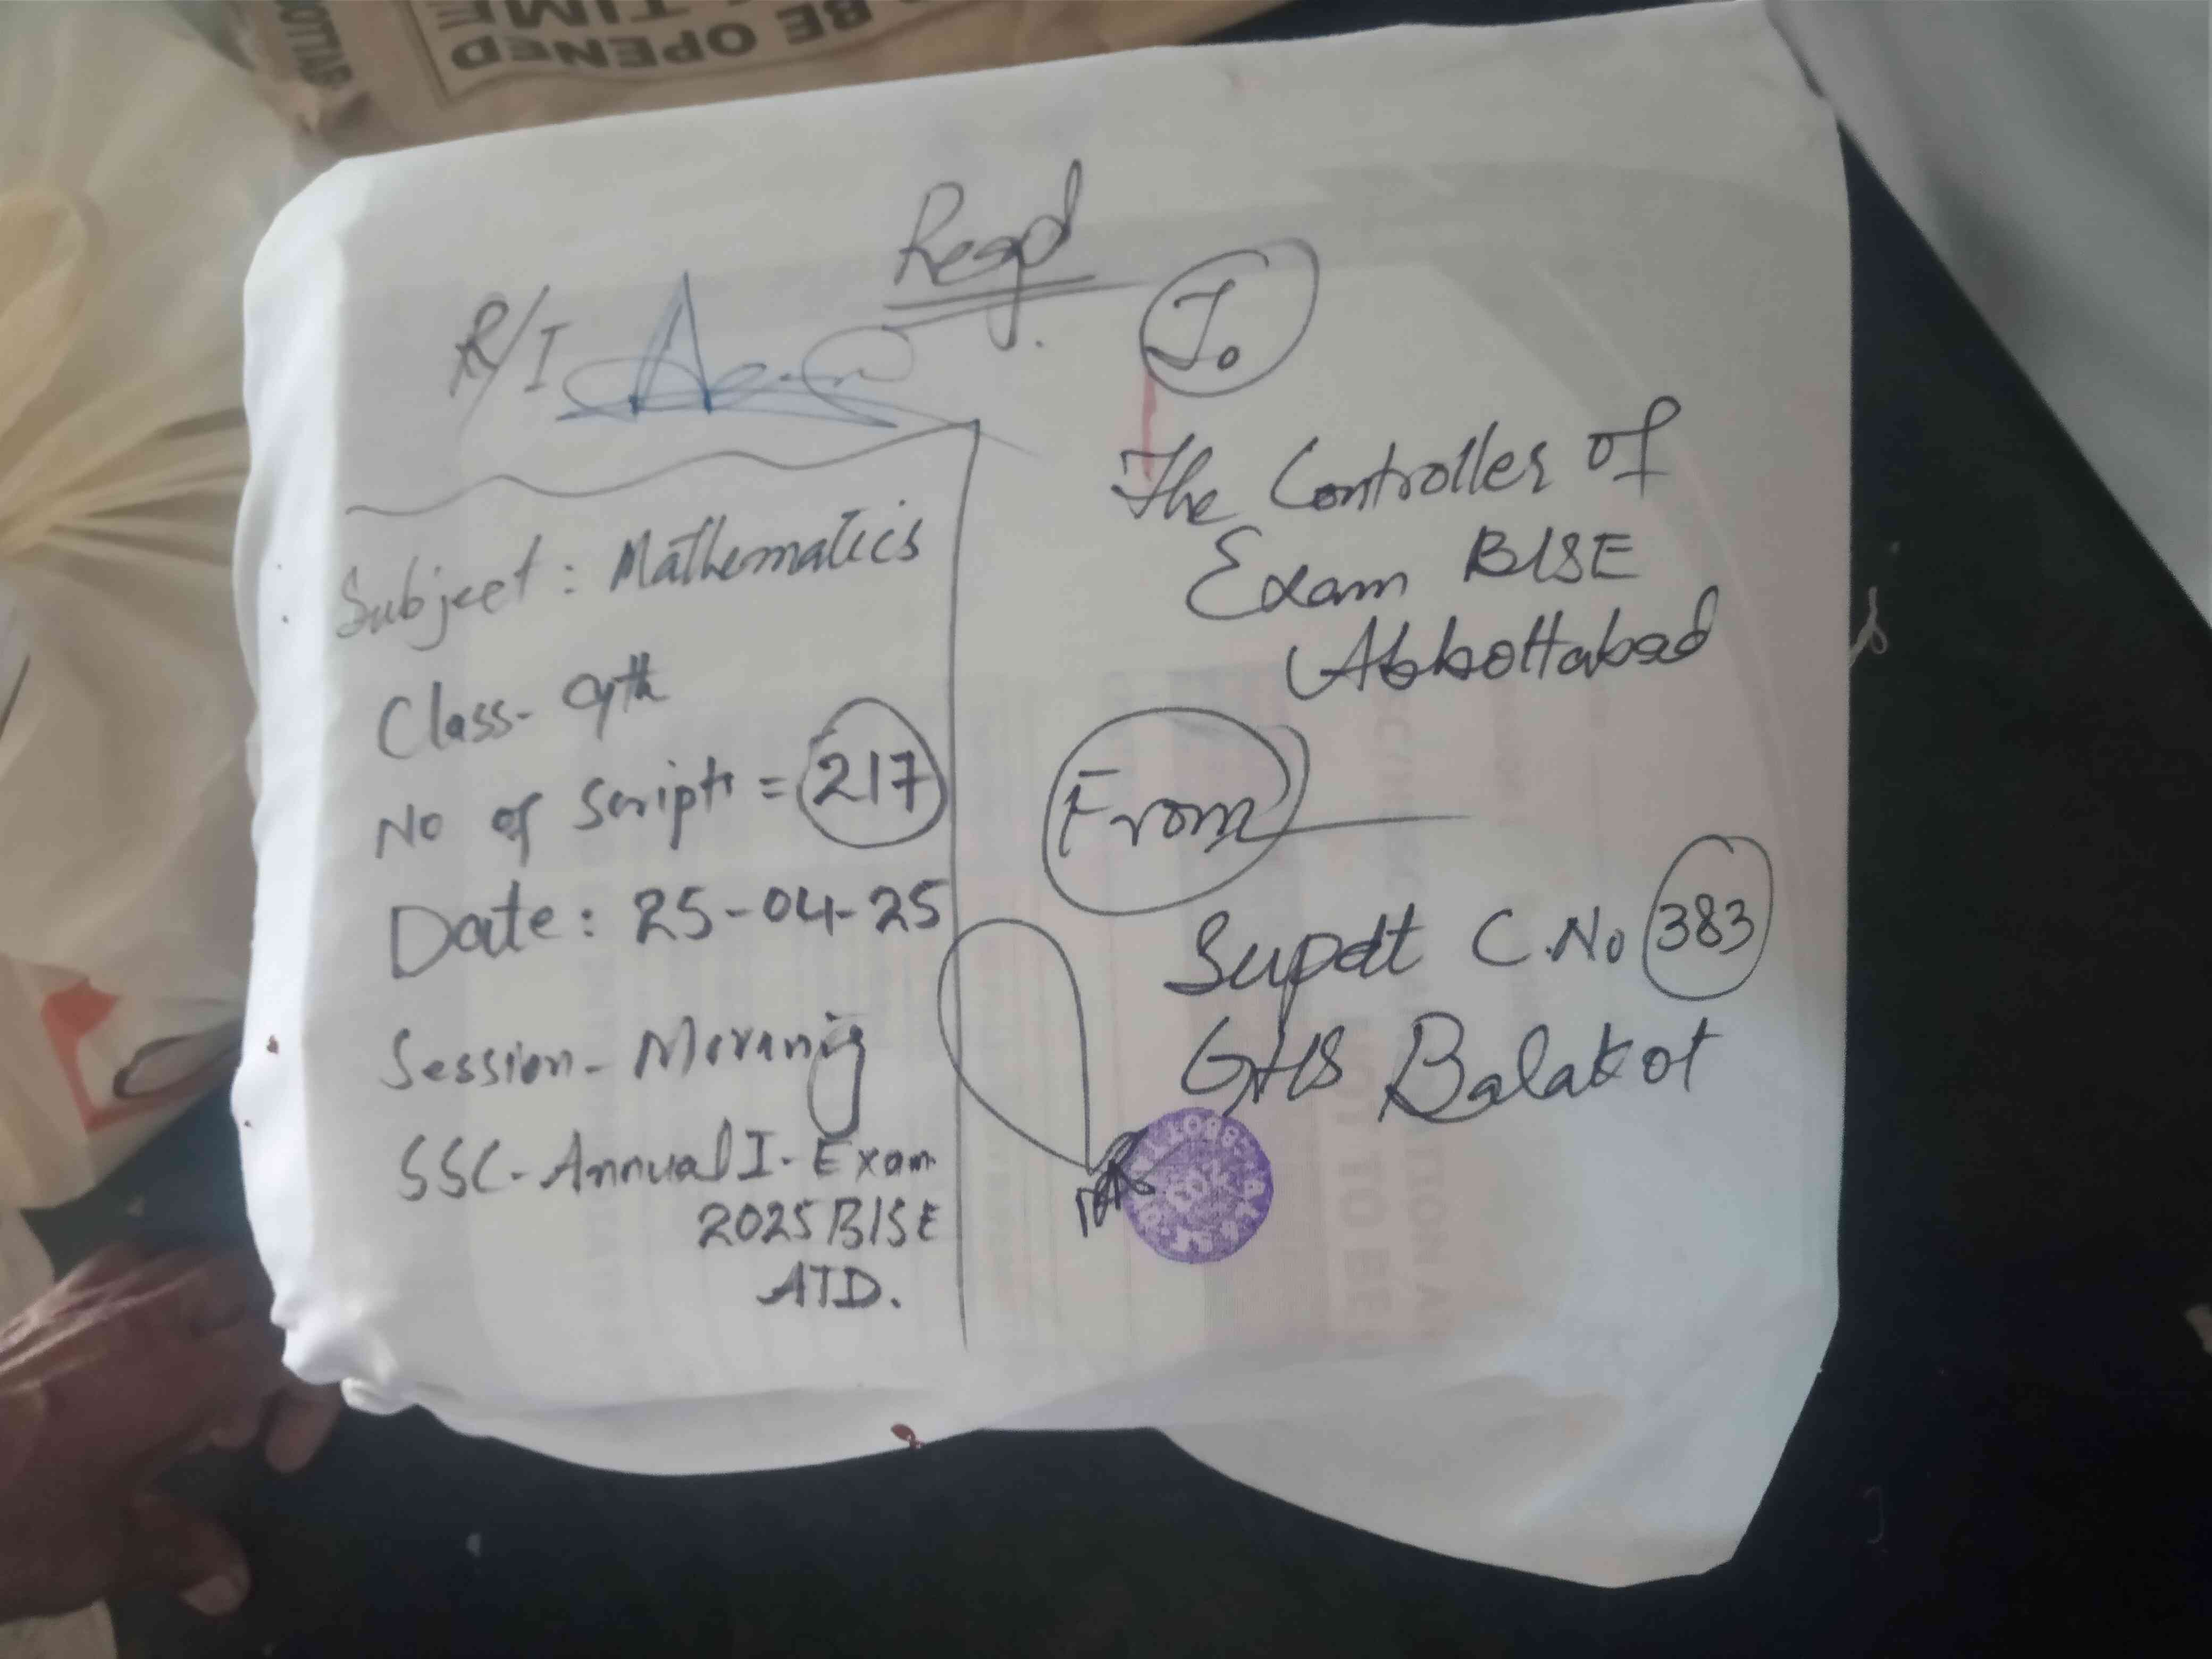 BE OPENED
TIME
Regd
R/I
To
The Controller of
Exam BISE
Abbottabad
From
Supdt C.No 383
GHS Balakot
Subject: Mathematics
Class- 9th
No of Scripts = 217
Date: 25-04-25
Session- Morning
SSC-Annual I- Exam
2025 BISE
ATD.